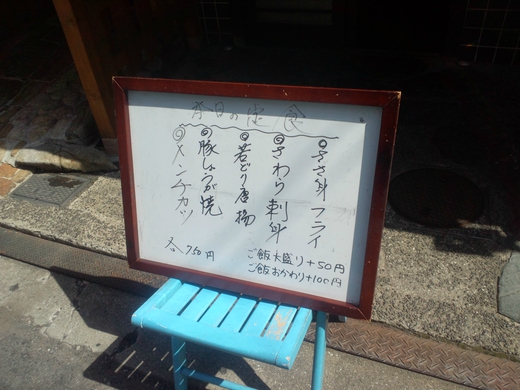 本日の定食
◎ささ身フライ
◎さわら刺身
◎若どり唐揚
◎豚しょうが焼
◎メンチカツ
各750円
ご飯大盛り+50円
ご飯おかわり+100円